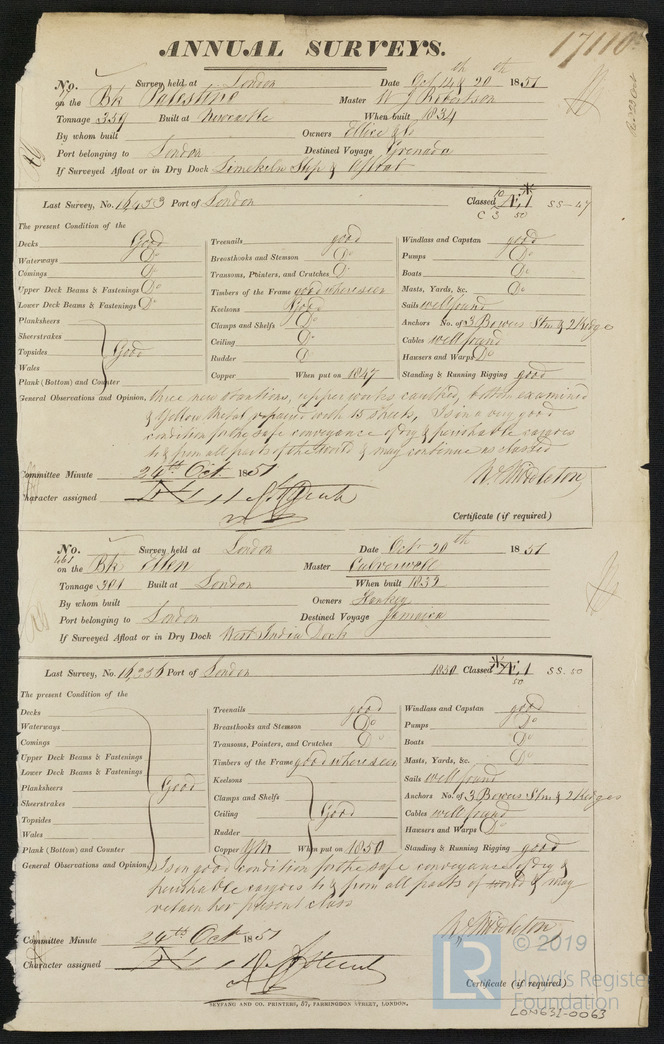 17110
ANNUAL SURVEYS.
No. Survey held at London Date Oct 14 & 20th 1851
on the Bk Palestine Master W J Robertson
Tonnage 359 Built at Newcastle When built 1834
By whom built Owners Ellice & Co
Port belonging to London Destined Voyage Grenada
If Surveyed Afloat or in Dry Dock Limekiln Slip & Afloat
Last Survey, No. Port of London Classed Æ 1 SS-47
C 3 50
The present Condition of the
Decks Good Treenails good Windlass and Capstan good
Waterways Do Breasthooks and Stemson Do Pumps Do
Comings Do Transoms, Pointers, and Crutches Do Boats Do
Upper Deck Beams & Fastenings Do Timbers of the Frame good where seen Masts, Yards, &c. Do
Lower Deck Beams & Fastenings Do Keelsons Good Sails well found
Planksheers Clamps and Shelfs Do Anchors No. of 3 Bowers Strm & 2 Kedge
Sheerstrakes Ceiling Do Cables well found
Topsides Good Rudder Do Hawsers and Warps Do
Wales Copper When put on 1847 Standing & Running Rigging good
Plank (Bottom) and Counter
General Observations and Opinion, three new upper works caulked, bottom examined
& Yellow Metal repaired with 15 sheets, Is in a very good
condition for the safe conveyance of dry & perishable cargoes
to & from all parts of the World & may continue as classed
Committee Minute 24th Oct 1851 W. Middleton
Character assigned
Certificate (if required)
No. Survey held at London Date Oct 20th 1851
461
on the Bk Ellen Master Culverwell
Tonnage 301 Built at London When built 1833
By whom built Owners Hankey
Port belonging to London Destined Voyage Jamaica
If Surveyed Afloat or in Dry Dock West India Dock
Last Survey, No. Port of London 1850 Classed Æ 1 SS. 50
50
The present Condition of the
Decks Treenails good Windlass and Capstan good
Waterways Breasthooks and Stemson Do Pumps Do
Comings Transoms, Pointers, and Crutches Do Boats Do
Upper Deck Beams & Fastenings Timbers of the Frame good where seen Masts, Yards, &c. Do
Lower Deck Beams & Fastenings Keelsons Sails well found
Planksheers Good Clamps and Shelfs Anchors No. of 3 Bowers Strm & 2 Kedges
Sheerstrakes Ceiling Good Cables well found
Topsides Rudder Hawsers and Warps Do
Wales Copper YM When put on 1850 Standing & Running Rigging good
Plank (Bottom) and Counter
General Observations and Opinion, Is in good condition for the safe conveyance of dry &
perishable cargoes to & from all parts of world & may
retain her present class
Committee Minute 24th Oct 1851 W. Middleton
Character assigned
Certificate (if required)
SEYFANG AND CO. PRINTERS, 57, FARRINGDON STREET, LONDON.
LR © 2019
Lloyd's Register
Foundation
LON631-0063